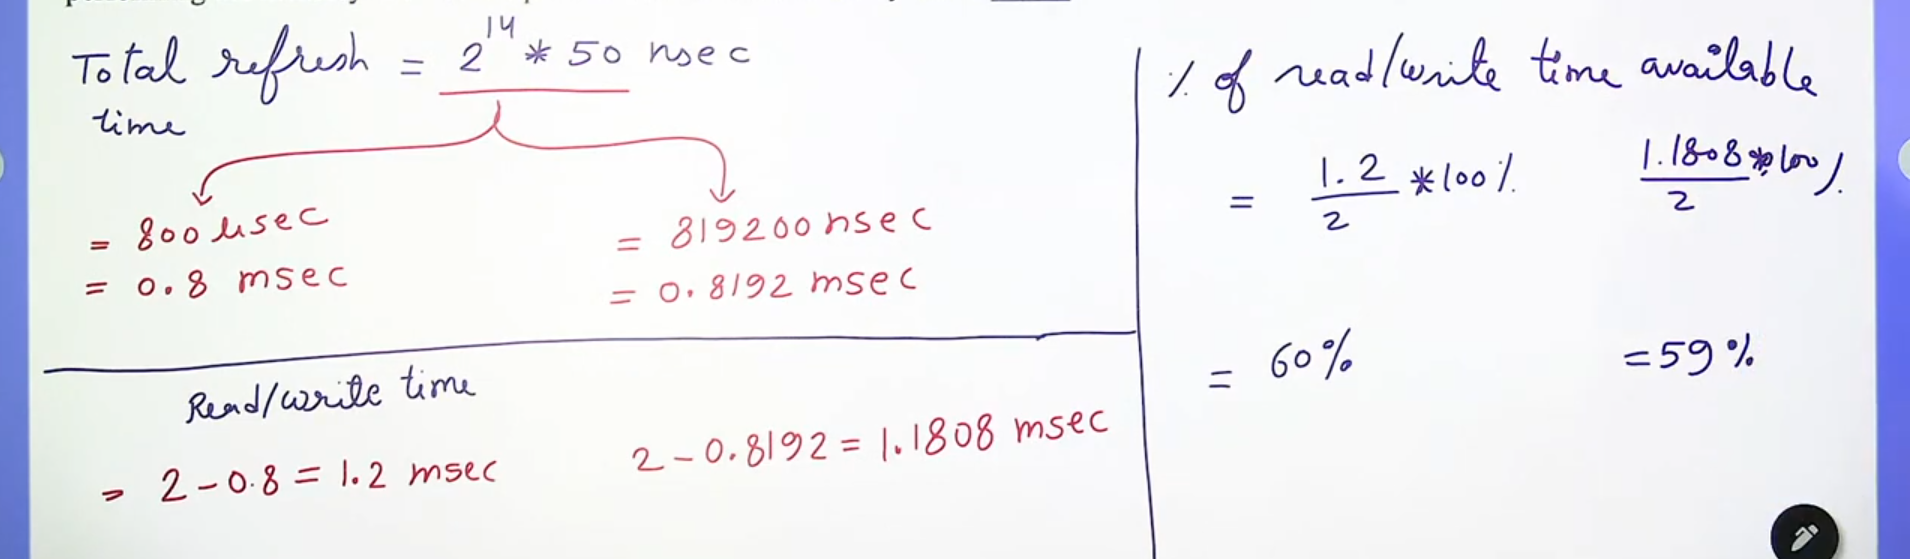 Total refresh = 2^14 * 50 nsec
time
= 800 μsec
= 0.8 msec
= 819200 nsec
= 0.8192 msec
Read/write time
= 2 - 0.8 = 1.2 msec
2 - 0.8192 = 1.1808 msec
% of read/write time available
= 1.2/2 * 100%
1.1808/2 * 100%
= 60%
= 59%